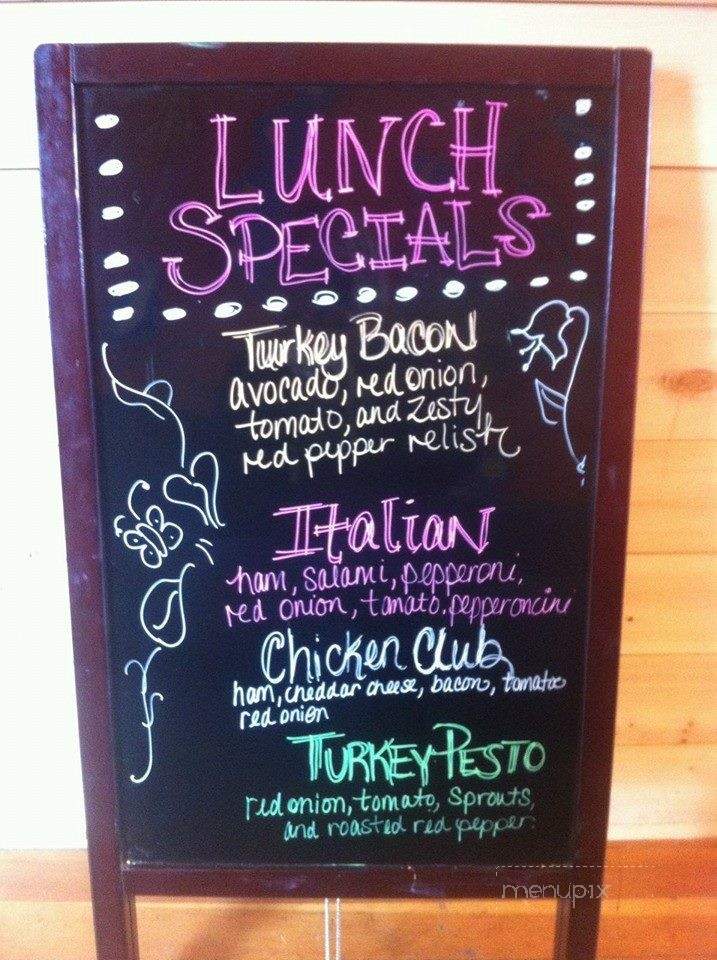 LUNCH
SPECIALS
Turkey Bacon
avocado, red onion,
tomato, and zesty
red pepper relish
Italian
ham, salami, pepperoni,
red onion, tomato, pepperoncini
Chicken Club
ham, cheddar cheese, bacon, tomatoe
red onion
TURKEY PESTO
red onion, tomato, sprouts,
and roasted red pepper.
menupix